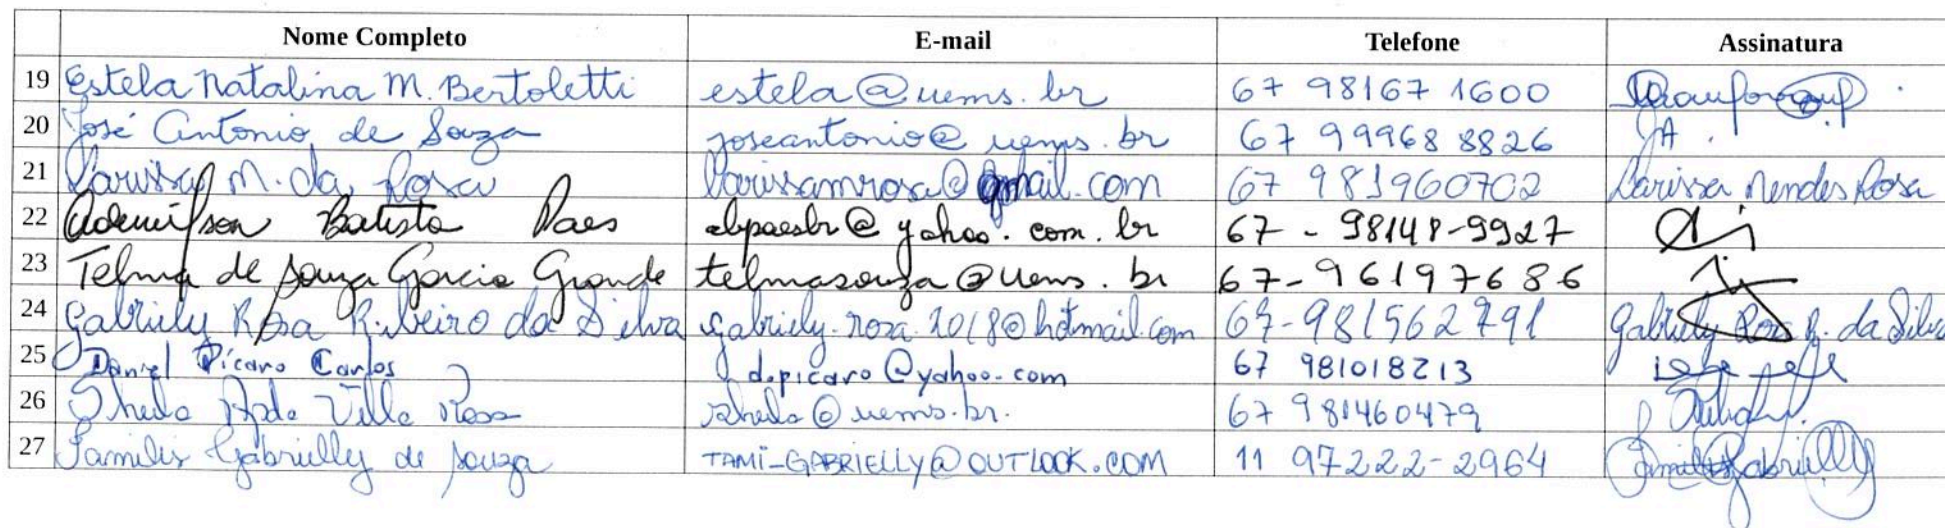 Nome Completo E-mail Telefone Assinatura
19 Estela Natalina M. Bertoletti estela@uems.br 67 98167 1600
20 José Antonio de Souza joseantonio@uems.br 67 99968 8826 JA.
21 Larissa M. da Rosa larissamrosa@gmail.com 67 981960702 Larissa Mendes Rosa
22 Ademilson Batista Paes abpaesbr@yahoo.com.br 67 - 98148-9927
23 Telma de Souza Garcia Grande telmasouza@uems.br 67-96197686
24 Gabriely Rosa Ribeiro da Silva gabriely.rosa.2018@hotmail.com 67-981562791 Gabriely Rosa R. da Silva
25 Daniel Pícaro Carlos d.picaro@yahoo.com 67 981018213
26 Sheila Villa Rosa sheila@uems.br. 67 981460479
27 Tamilis Gabrielly de Souza TAMI-GABRIELLY@OUTLOOK.COM 11 97222-2964 Tamilis Gabrielly